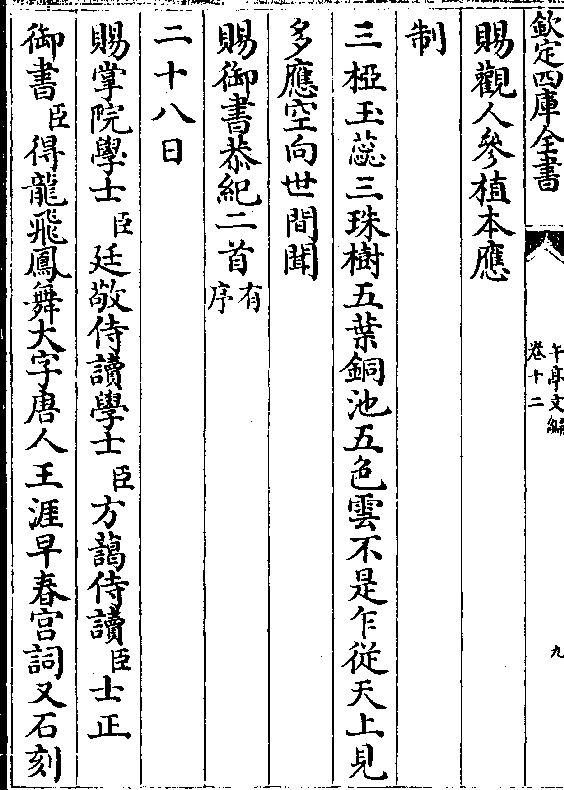 欽定四庫全書
午亭文編
卷十二
九
賜觀人參植本應
制
三椏玉蕊三珠樹五葉銅池五色雲不是乍從天上見
多應空向世間聞
賜御書恭紀二首有序
二十八日
賜掌院學士臣廷敬侍讀學士臣方藹侍讀臣士正
御書臣得龍飛鳳舞大字唐人王涯早春宮詞又石刻